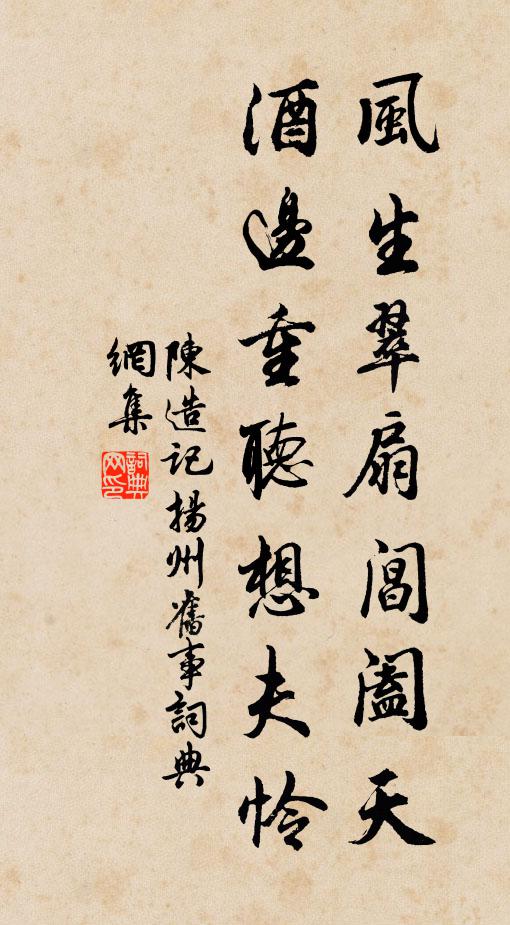 風生翠扇閶闔天
酒邊重聽想夫怜
陳造記揚州舊事詞典
網集
詞典網印